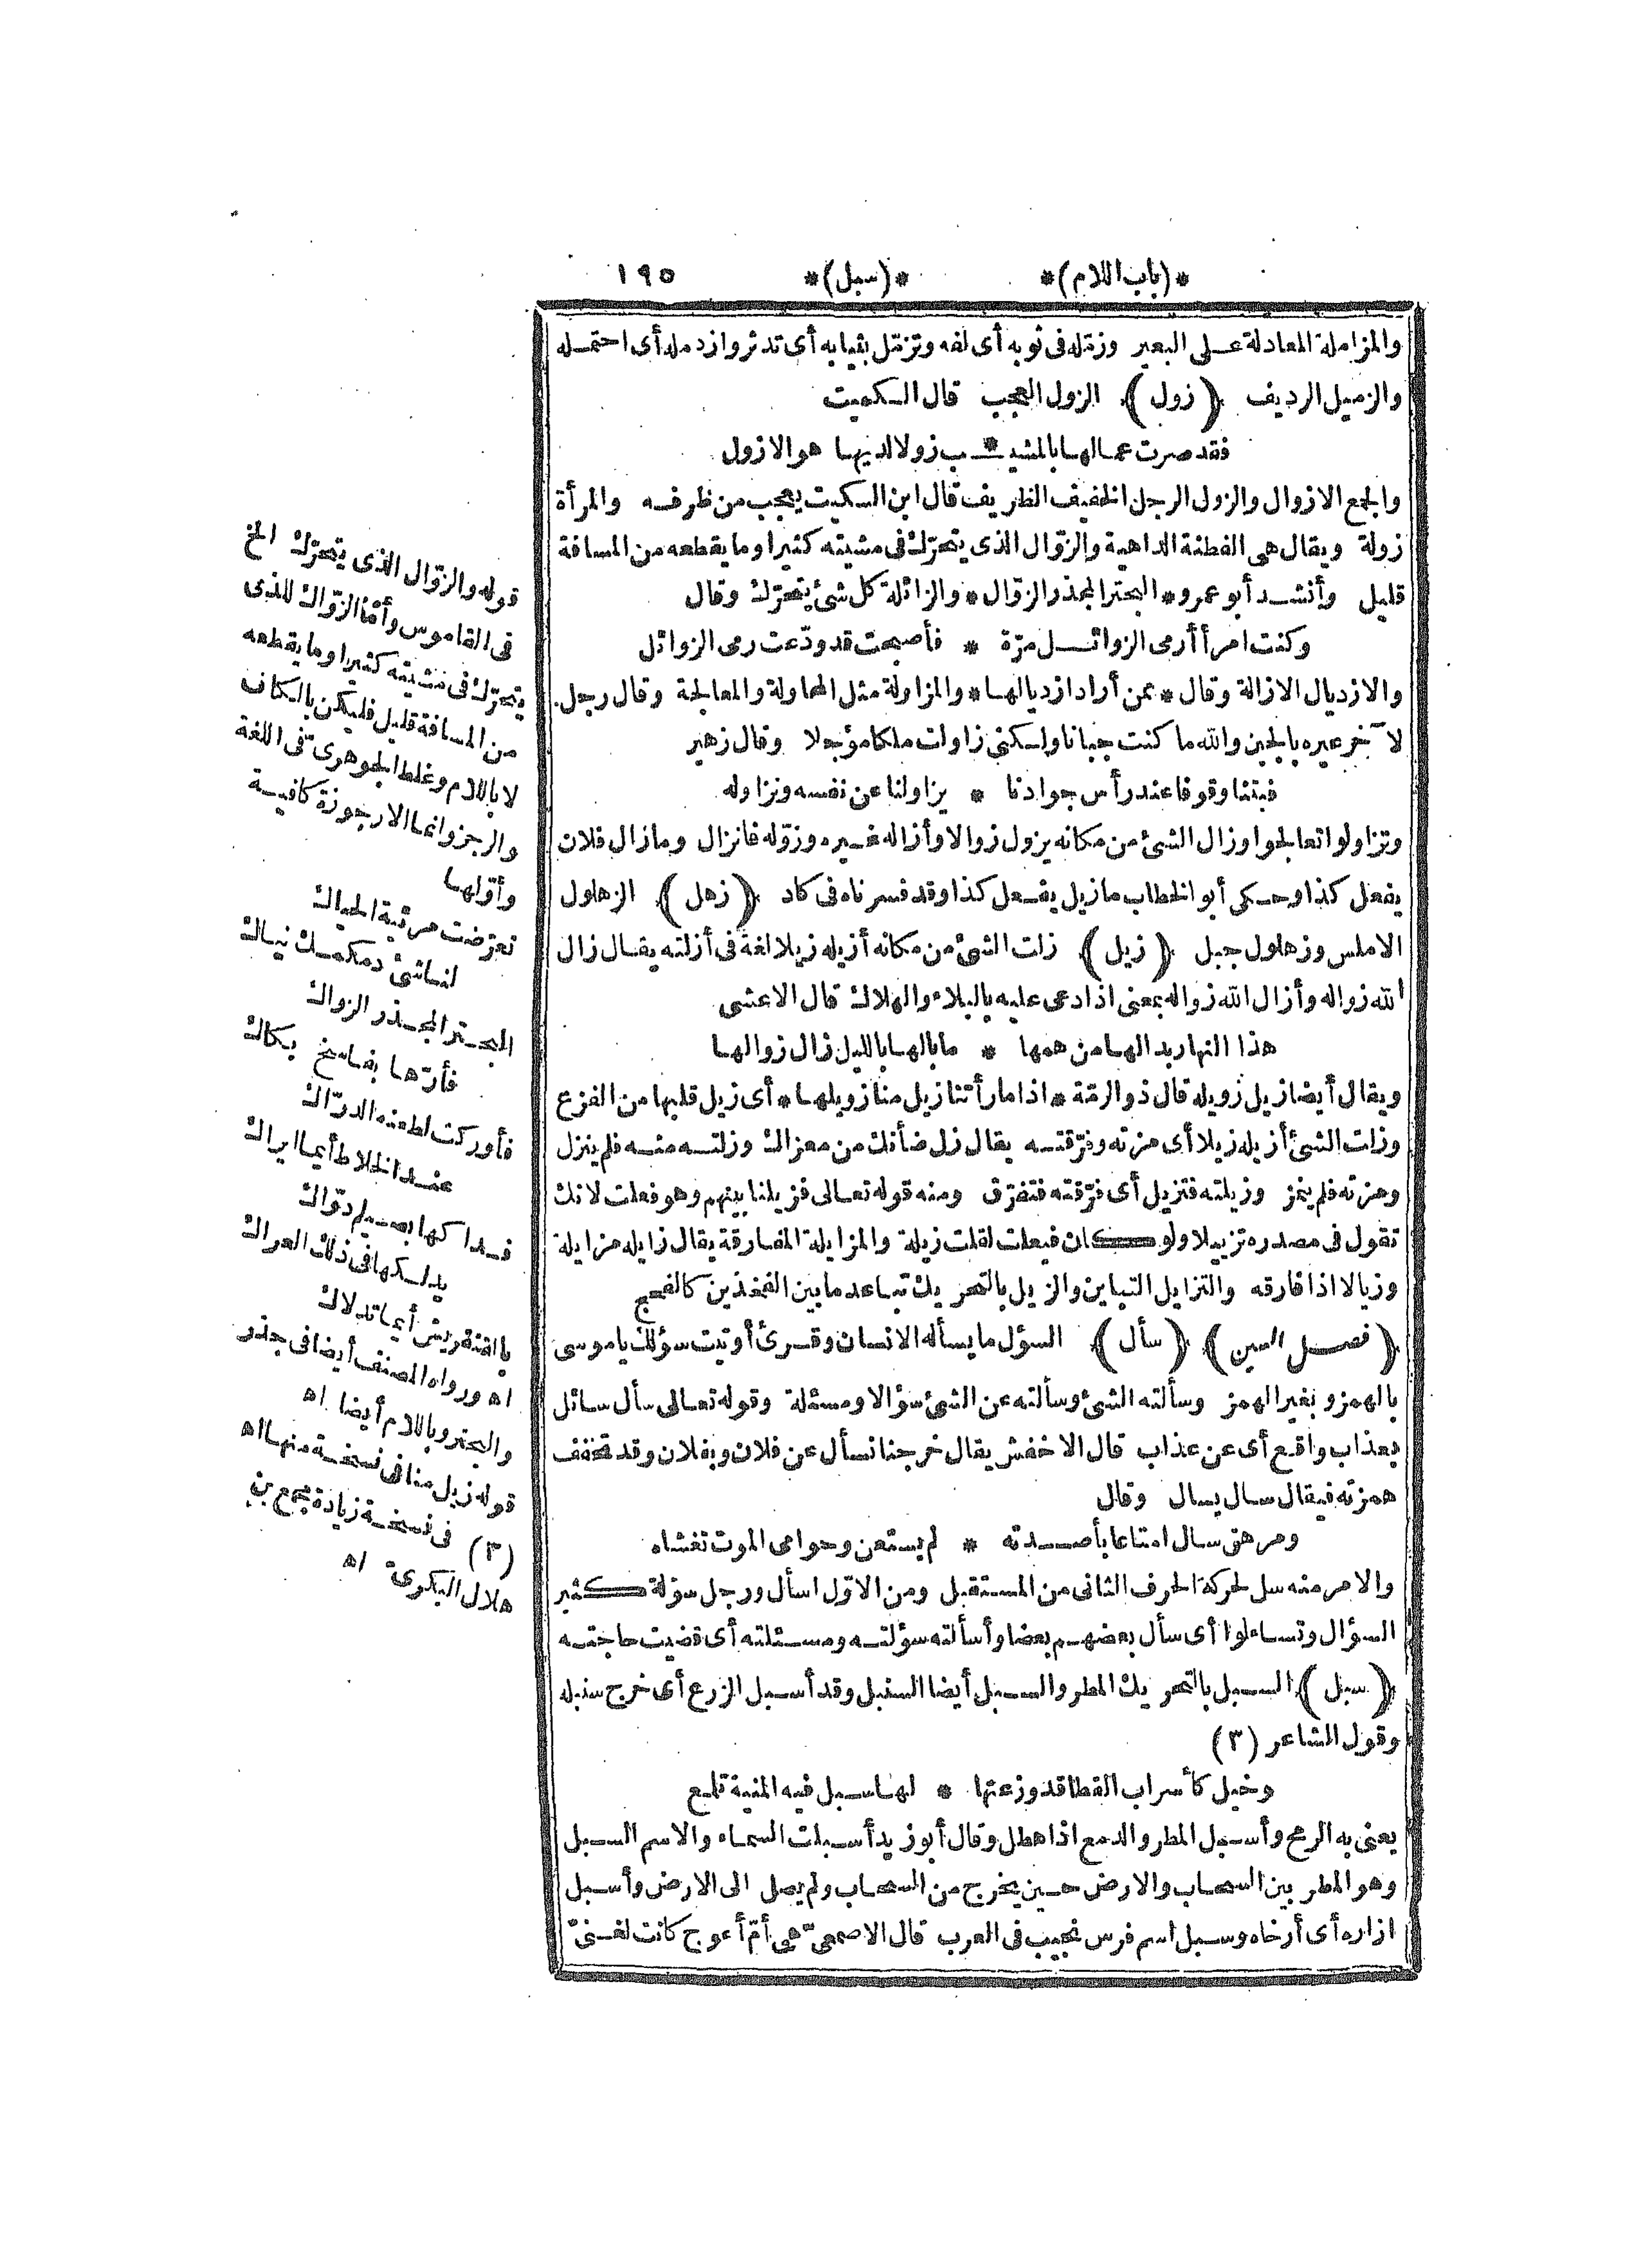 *(باب اللام)* *(سبل)* ١٩٥
والمزاملة المعادلة على البعير وزمّله فى ثوبه أى لفه وتزمّل بثيابه أى تدثر وازدمله أى احتمله
والزميل الرديف ﴿زول﴾ الزول العجب قال الكميت
فقد صرت عما لها بالمشيـ * ـب زولا لديها هو الازول
والجمع الازوال والزول الرجل الخفيف الظريف قال ابن السكيت يعجب من ظرفه والمرأة
زولة ويقال هى الفطنة الداهية والزوّال الذى يتحرّك فى مشيته كثيرا وما يقطعه من المسافة
قليل وأنشد أبو عمرو * البحتر المجذر الزوّال * والزائلة كل شئ يتحرّك وقال
وكنت امرأ أرمى الزوائل مرّة * فأصبحت قد ودّعت رمى الزوائل
والازديال الازالة وقال * ممن أراد ازديالها * والمزاولة مثل المحاولة والمعالجة وقال رجل
لآخر عيره بالجبن والله ما كنت جبانا ولكنى زاولت ملكا مؤجلا وقال زهير
فبتنا وقوفا عند رأس جوادنا * يزاولنا عن نفسه ونزاوله
وتزاولوا تعالجوا وزال الشئ من مكانه يزول زوالا وأزاله غيره وزوّله فانزال وما زال فلان
يفعل كذا وحكى أبو الخطاب ما زيل يفعل كذا وقد فسرناه فى كاد ﴿زهل﴾ الزهلول
الاملس وزهلول جبل ﴿زيل﴾ زلت الشئ من مكانه أزيله زيلا لغة فى أزلته يقال زال
الله زواله وأزال الله زواله بمعنى اذا دعى عليه بالبلاء والهلاك قال الاعشى
هذا النهار بدا لها من همها * ما بالها بالليل زال زوالها
ويقال أيضا زيل زويله قال ذو الرمّة * اذا ما رأتنا زيل منا زويلها * أى زيل قلبها من الفزع
وزلت الشئ أزيله زيلا أى مزته وفرّقته يقال زل ضأنك من معزاك وزلته منه فلم ينزل
ومزته فلم ينمز وزيلته فتزيل أى فرّقته فتفرّق ومنه قوله تعالى فزيلنا بينهم وهو فعلت لانك
تقول فى مصدره تزييلا ولو كان فيعلت لقلت زيلة والمزايلة المفارقة يقال زايله مزايلة
وزيالا اذا فارقه والتزايل التباين والزيل بالتحريك تباعد ما بين الفخذين كالفحج
﴿فصل السين﴾ ﴿سأل﴾ السؤل ما يسأله الانسان وقرئ أوتيت سؤلك يا موسى
بالهمز وبغير الهمز وسألته الشئ وسألته عن الشئ سؤالا ومسئلة وقوله تعالى سأل سائل
بعذاب واقع أى عن عذاب قال الاخفش يقال خرجنا نسأل عن فلان وبفلان وقد تخفف
همزته فيقال سال يسال وقال
ومرهق سال امتاعا بأصدته * لم يستعن وحوامى الموت تغشاه
والامر منه سل لحركة الحرف الثانى من المستقبل ومن الاوّل اسأل ورجل سؤلة كثير
السؤال وتساءلوا أى سأل بعضهم بعضا وأسألته سؤلته ومسئلته أى قضيت حاجته
﴿سبل﴾ السبل بالتحريك المطر والسبل أيضا السنبل وقد أسبل الزرع أى خرج سنبله
وقول الشاعر (٣)
وخيل كأسراب القطا قد وزعتها * لها سبل فيه المنية تلمع
يعنى به الرمح وأسبل المطر والدمع اذا هطل وقال أبو زيد أسبلت السماء والاسم السبل
وهو المطر بين السحاب والارض حين يخرج من السحاب ولم يصل الى الارض وأسبل
ازاره أى أرخاه وسبل اسم فرس نجيب فى العرب قال الاصمعىّ هى أمّ أعوج كانت لغنىّ
قوله والزوّال الذى يتحرّك الخ
فى القاموس وأمّا الزوّاك للذى
يتحرّك فى مشيته كثيرا وما يقطعه
من المسافة قليل فليكن بالكاف
لا باللام وغلط الجوهرى فى اللغة
والرجز وانما الارجوزة كافية
وأوّلها
تعرّضت مريئة الحياك
لناشئ دمكمك نياك
البحتر المجذر الزواك
فأرّها بقاسح بكاك
فأوركت لطعنه الدرّاك
عند الخلاط أيما ايراك
فداكها بصيلم دوّاك
يدلكها فى ذلك العراك
بالقنفريش أيما تدلاك
اه ورواه المصنف أيضا فى جذر
والبحتر وباللام أيضا اه
قوله زيل منا فى نسخة منها اه
(٣) فى نسخة زيادة مجمع بن
هلال البكرى اه